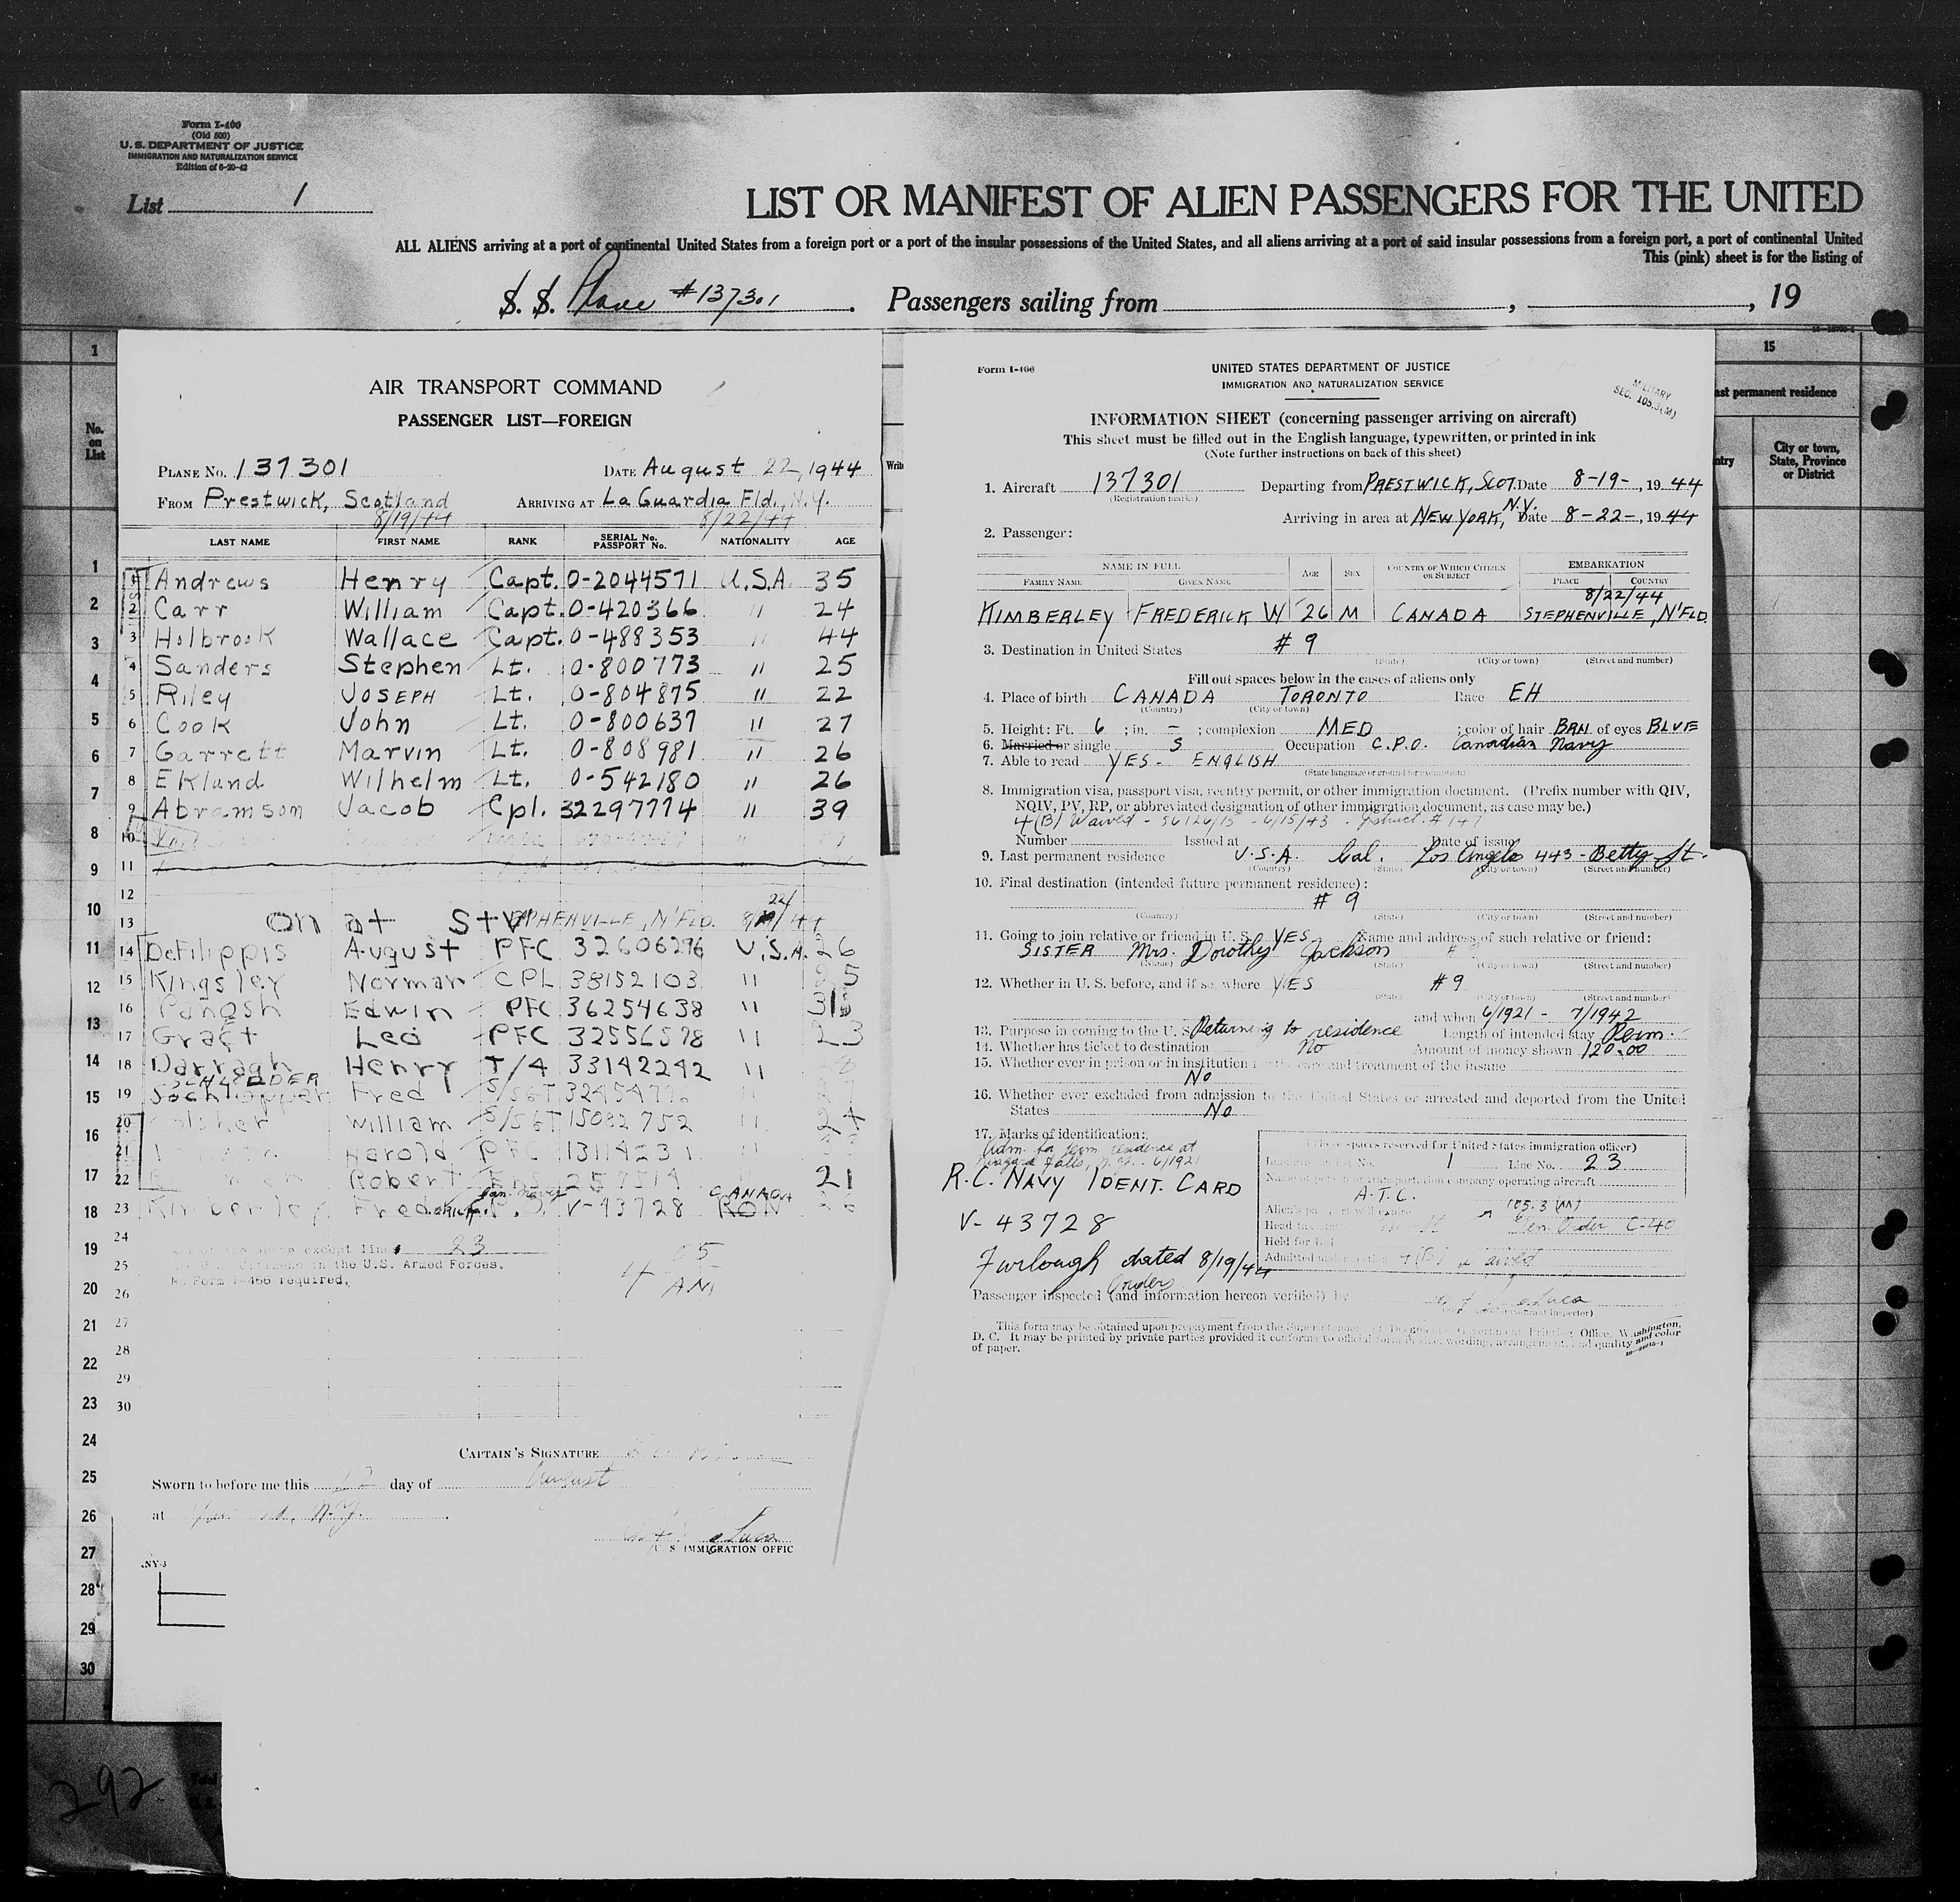 Form I-400
(Old 500)
U. S. DEPARTMENT OF JUSTICE
IMMIGRATION AND NATURALIZATION SERVICE
Edition of 6-20-42
List 1
LIST OR MANIFEST OF ALIEN PASSENGERS FOR THE UNITED
ALL ALIENS arriving at a port of continental United States from a foreign port or a port of the insular possessions of the United States, and all aliens arriving at a port of said insular possessions from a foreign port, a port of continental United
This (pink) sheet is for the listing of
S. S. Plane #137301. Passengers sailing from , , 19
AIR TRANSPORT COMMAND
PASSENGER LIST—FOREIGN
PLANE No. 137301 DATE August 22, 1944
FROM Prestwick, Scotland ARRIVING AT La Guardia Fld., N.Y.
8/19/44 8/22/44
LAST NAME FIRST NAME RANK SERIAL No. PASSPORT No. NATIONALITY AGE
1 Andrews Henry Capt. O-2044571 U.S.A. 35
2 Carr William Capt. O-420366 " 24
3 Holbrook Wallace Capt. O-488353 " 44
4 Sanders Stephen Lt. O-800773 " 25
5 Riley JOSEPH Lt. O-804875 " 22
6 Cook John Lt. O-800637 " 27
7 Garrett Marvin Lt. O-808981 " 26
8 Eklund Wilhelm Lt. O-542180 " 26
9 Abramson Jacob Cpl. 32297774 " 39
10
11
12
13 on at STEPHENVILLE, N'FLD. 8/22/44
14 DeFilippis August PFC 32606296 U.S.A. 26
15 Kingsley Norman CPL 38152103 " 25
16 Panosh Edwin PFC 36254638 " 31
17 Graft Leo PFC 32556578 " 23
18 Darragh Henry T/4 33142242 "
19 Fred S/SGT
20 William S/SGT 15082752 " 24
21 Harold PFC 13114231 "
22 Robert ENS 21
23 Kimberley Frederick C.P.O. V-43728 CANADA RCN 26
24 of the above except line 23
25 Citizens in the U.S. Armed Forces.
26 No Form I-466 required.
4 05 AM
27
28
29
30
CAPTAIN'S SIGNATURE
Sworn to before me this 22 day of August
at N.Y.
U. S. IMMIGRATION OFFIC
NY-3
Form I-466
UNITED STATES DEPARTMENT OF JUSTICE
IMMIGRATION AND NATURALIZATION SERVICE
MILITARY
SEC. 105.3(M)
INFORMATION SHEET (concerning passenger arriving on aircraft)
This sheet must be filled out in the English language, typewritten, or printed in ink
(Note further instructions on back of this sheet)
1. Aircraft 137301 Departing from PRESTWICK, SCOT. Date 8-19-, 1944
(Registration marks)
Arriving in area at NEW YORK, N.Y. Date 8-22-, 1944
2. Passenger:
NAME IN FULL AGE SEX COUNTRY OF WHICH CITIZEN OR SUBJECT EMBARKATION
FAMILY NAME GIVEN NAME PLACE COUNTRY
8/22/44
KIMBERLEY FREDERICK W 26 M CANADA STEPHENVILLE, N'FLD.
3. Destination in United States # 9
(State) (City or town) (Street and number)
Fill out spaces below in the cases of aliens only
4. Place of birth CANADA TORONTO Race EH
(Country) (City or town)
5. Height: Ft. 6; in. –; complexion MED; color of hair BRN of eyes BLUE
6. Married or single S Occupation C.P.O. Canadian Navy
7. Able to read YES - ENGLISH
(State language or ground for exemption)
8. Immigration visa, passport visa, reentry permit, or other immigration document. (Prefix number with QIV,
NQIV, PV, RP, or abbreviated designation of other immigration document, as case may be.)
4(B) Waived - 56126/15 - 6/15/43 - # 147
Number Issued at Date of issue
9. Last permanent residence U.S.A. Cal. Los Angeles 443 - Betty St.
(Country) (State) (City or town) (Street and number)
10. Final destination (intended future permanent residence):
# 9
(Country) (State) (City or town) (Street and number)
11. Going to join relative or friend in U. S. YES Name and address of such relative or friend:
SISTER Mrs. Dorothy Jackson #
(Name) (State) (City or town) (Street and number)
12. Whether in U. S. before, and if so where YES #9
(State) (City or town) (Street and number)
and when 6/1921 - 7/1942
13. Purpose in coming to the U. S. Returning to residence Length of intended stay Perm.
14. Whether has ticket to destination No Amount of money shown 120.00
15. Whether ever in prison or in institution for the care and treatment of the insane
No
16. Whether ever excluded from admission to the United States or arrested and deported from the United
States No
17. Marks of identification:
Adm. for perm. residence at
Niagara Falls, N.Y. 6/1921
R.C. NAVY IDENT. CARD
V-43728
Furlough dated 8/19/44
Orders
(These spaces reserved for United States immigration officer)
1 Line No. 23
Name of transportation company operating aircraft
A.T.C.
105.3 (M)
Head tax Gen. Order C-40
Held for
Admitted under 4(B) waived
Passenger inspected (and information hereon verified) by
This form may be obtained upon prepayment from the Superintendent of Documents, Government Printing Office, Washington,
D. C. It may be printed by private parties provided it conforms to official form in size, wording, arrangement, and quality and color
of paper.
No. on List
1
2
3
4
5
6
7
8
9
10
11
12
13
14
15
16
17
18
19
20
21
22
23
24
25
26
27
28
29
30
15
ast permanent residence
ntry
City or town, State, Province or District
292